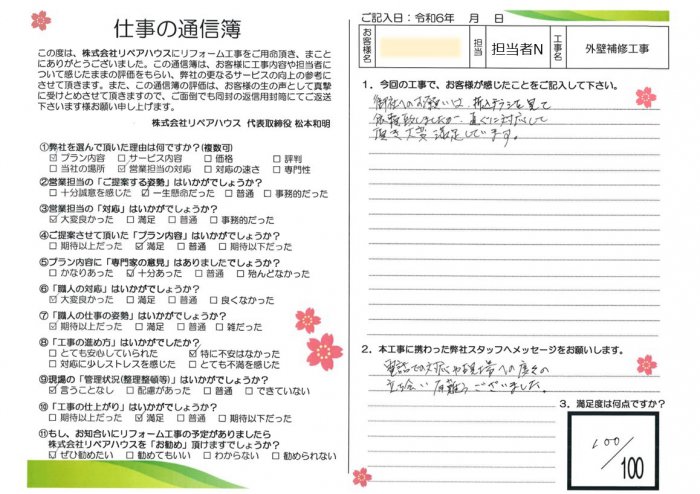 仕事の通信簿
この度は、株式会社リペアハウスにリフォーム工事をご用命頂き、まこと
にありがとうございました。この通信簿は、お客様に工事内容や担当者に
ついて感じたままの評価をもらい、弊社の更なるサービスの向上の参考に
させて頂きます。また、この通信簿の評価は、お客様の生の声として真摯
に受けとめさせて頂きますので、ご面倒でも同封の返信用封筒にてご返送
下さいます様お願い申し上げます。
株式会社リペアハウス 代表取締役 松本和明
①弊社を選んで頂いた理由は何ですか?(複数可)
☑プラン内容 □サービス内容 □価格 □評判
□当社の場所 ☑営業担当の対応 □対応の速さ □専門性
②営業担当の「ご提案する姿勢」はいかがでしょうか?
□十分誠意を感じた ☑一生懸命だった □普通 □事務的だった
③営業担当の「対応」はいかがでしょうか?
☑大変良かった □満足 □普通 □事務的だった
④ご提案させて頂いた「プラン内容」はいかがでしょうか?
□期待以上だった ☑満足 □普通 □期待以下だった
⑤プラン内容に「専門家の意見」はありましたでしょうか?
□かなりあった ☑十分あった □普通 □殆んどなかった
⑥「職人の対応」はいかがでしょうか?
☑大変良かった □満足 □普通 □良くなかった
⑦「職人の仕事の姿勢」はいかがでしょうか?
☑期待以上だった □満足 □普通 □雑だった
⑧「工事の進め方」はいかがでしたか?
□とても安心していられた ☑特に不安はなかった
□対応に少しストレスを感じた □とても不満を感じた
⑨現場の「管理状況(整理整頓等)」はいかがでしょうか?
☑言うことなし □配慮があった □普通 □できていない
⑩「工事の仕上がり」はいかがでしょうか?
□期待以上だった ☑満足 □普通 □期待以下だった
⑪もし、お知合いにリフォーム工事の予定がありましたら
株式会社リペアハウスを「お勧め」頂けますでしょうか?
☑ぜひ勧めたい □勧めてもいい □わからない □勧められない
ご記入日:令和6年 月 日
お客様名
担当 担当者N
工事名 外壁補修工事
1.今回の工事で、お客様が感じたことをご記入して下さい。
御社へのお願いは、折込チラシを見て
依頼致しましたが、直ぐに対応して
頂き大変満足しています。
2.本工事に携わった弊社スタッフへメッセージをお願いします。
電話での対応や現場への度々の
立ち会い有難うございました。
3.満足度は何点ですか?
100/100